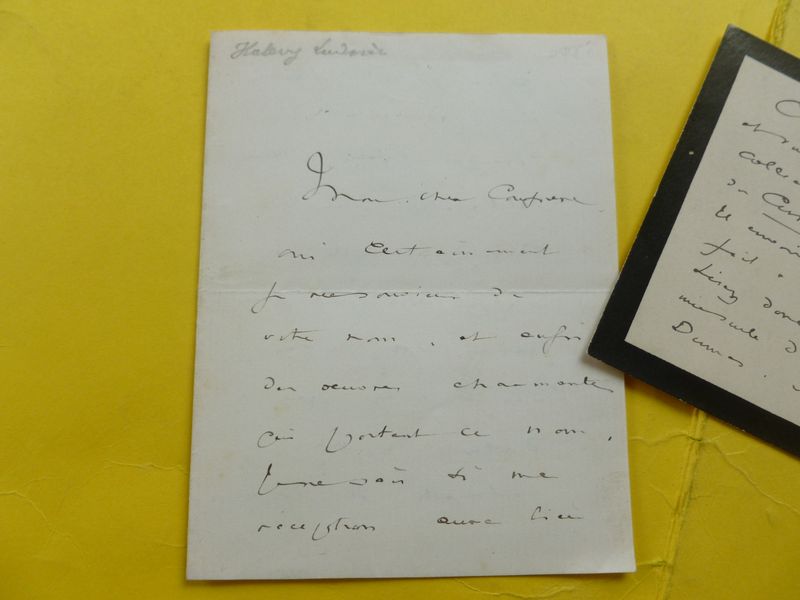 Halevy Ludovic
Mon cher Confrère
oui certainement
je me souviens de
votre nom, et aussi
des oeuvres charmantes
qui portent ce nom.
Je ne sais si ma
réception aura lieu
et
du
Il
fait
Lisez donc
Dumas.